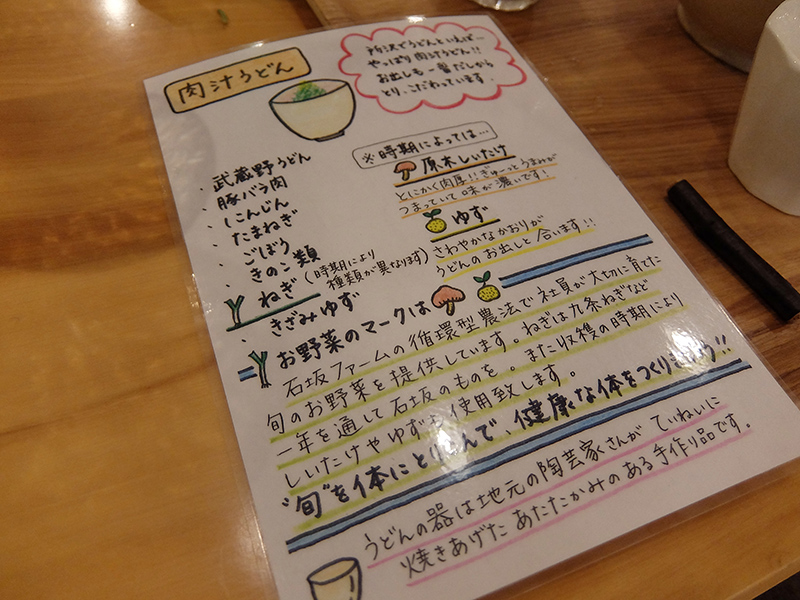 肉汁うどん
所沢でうどんといえばー
やっぱり肉汁うどん!!
お出しも一番だしから
とり、こだわっています。
・武蔵野うどん
・豚バラ肉
・にんじん
・たまねぎ
・ごぼう
・きのこ類
(時期により
種類が異なります)
ねぎ
・きざみゆず
※時期によっては…
原木しいたけ
とにかく肉厚!!ぎゅーっとうまみが
つまっていて味が濃いです!
ゆず
さわやかなかおりが
うどんのお出しと合います!!
お野菜のマークは
石坂ファームの循環型農法で社員が大切に育てた
旬のお野菜を提供しています。ねぎは九条ねぎなど
一年を通して石坂のものを。また収穫の時期により
しいたけやゆずも使用致します。
"旬"を体にとりこんで、健康な体をつくりましょう!!
うどんの器は地元の陶芸家さんがていねいに
焼きあげたあたたかみのある手作り品です。